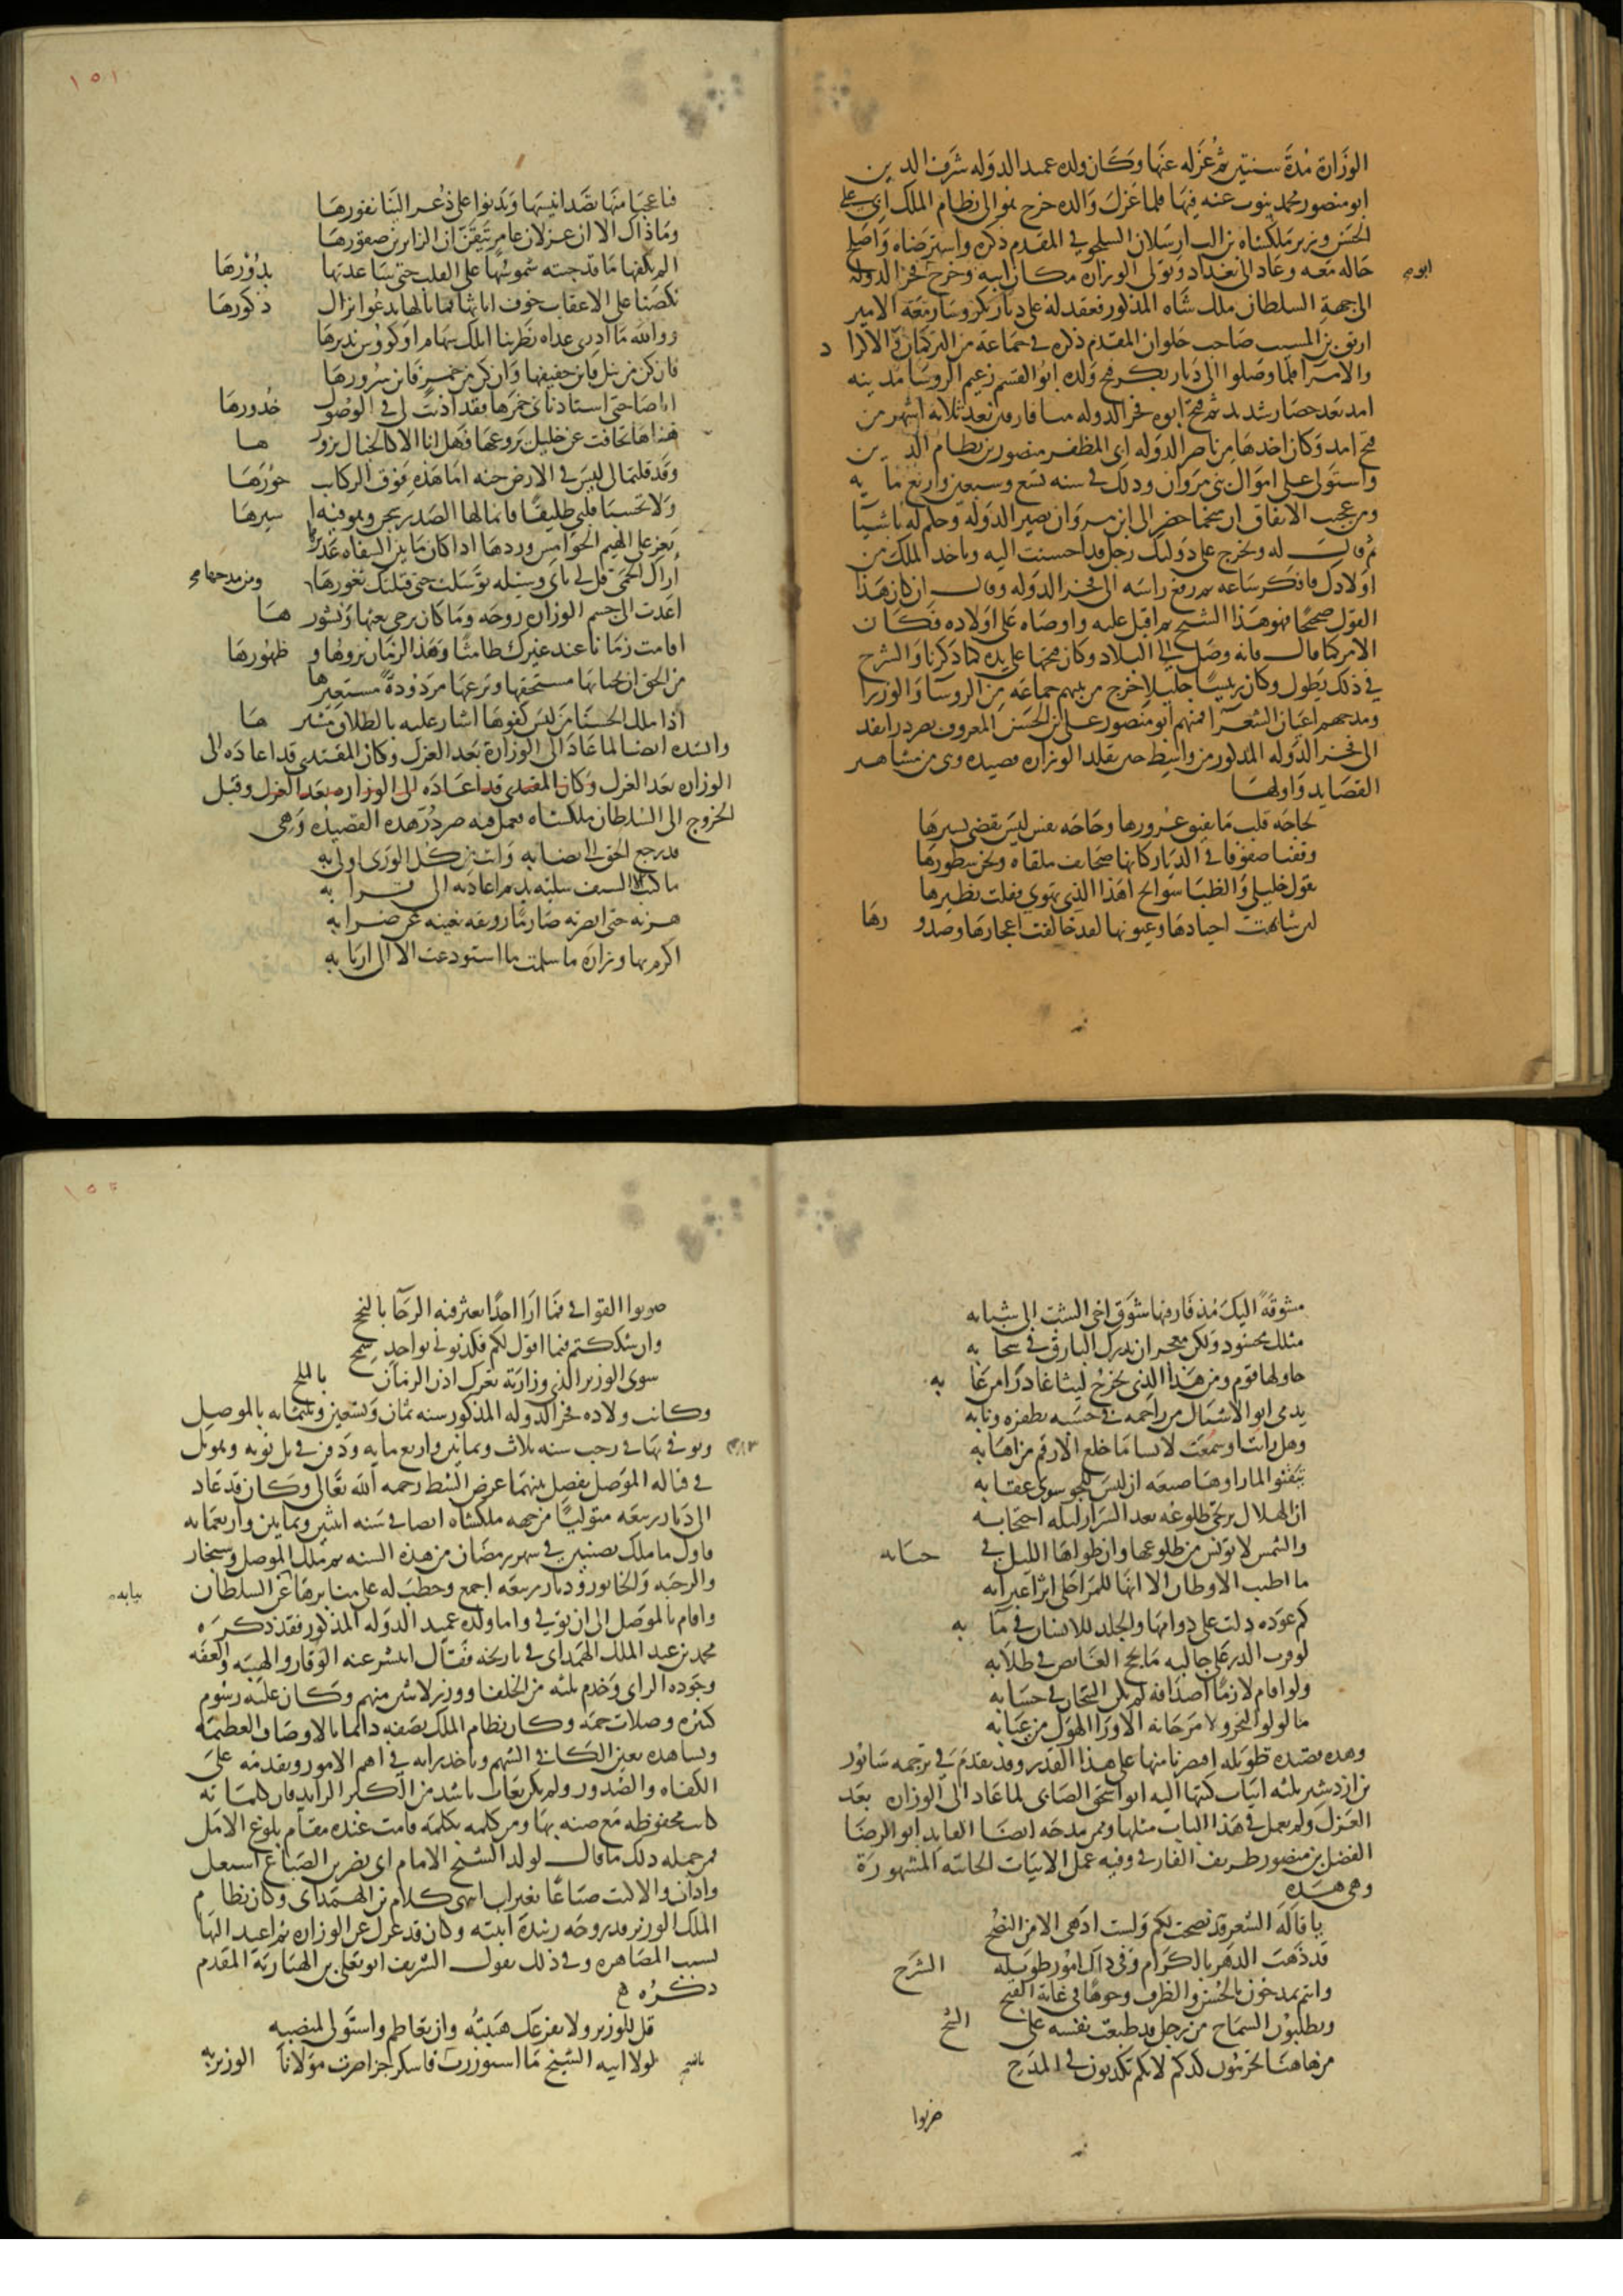 الوزارة مدة سنتين ثم عزله عنها وكان ولده عميد الدوله شرف الدين
ابو منصور محمد ينوب عنه فيها فلما عزل والده خرج هو الى نظام الملك ابي علي
الحسن وزير ملكشاه بن الب ارسلان السلجوقي المقدم ذكره واسترضاه واصلح
حاله معه وعاد الى بغداد وتولى الوزاره مكان ابيه وخرج فخر الدوله
ابوه
الى جهة السلطان ملك شاه المذكور فعقد له على ديار بكر وسار معه الامير
ارتق بن المسب صاحب حلوان المقدم ذكره في جماعه من التركمان والاكراد
والامرا فلما وصلوا الى ديار بكر فتح ولده ابو القسم زعيم الروسا مدينه
امد بعد حصار شديد ثم فتح ابوه فخر الدوله ميافارقين بعد ثلاثة اشهر من
فتح امد وكان اخذها من ناصر الدوله ابي المظفر منصور بن نظام الدين
واستولى على اموال بني مروان وذلك في سنه تسع وسبعين واربع مايه
ومن عجيب الاتفاق ان منجما حضر الى ابن مروان نصير الدوله وحكم له باشيا
ثم قال له ويخرج على دولتك رجل قد احسنت اليه وياخذ الملك من
اولادك فافكر ساعه ثم رفع راسه الى فخر الدوله وقال ان كان هذا
القول صحيحا فهو هذا الشيخ ثم اقبل عليه واوصاه على اولاده فكان
الامر كما قال فانه وصل الى البلاد وكان فتحها على يده كما ذكرنا والشرح
في ذلك يطول وكان رييسا جليلا خرج من بيتهم جماعه من الروسا والوزرا
ومدحهم اعيان الشعرا فمنهم ابو منصور علي بن الحسن المعروف بصردر انفذ
الى فخر الدوله المذكور من واسط حين تقلد الوزاره قصيده وهي من مشاهير
القصايد واولها
لحاجه قلب ما يفيق غرورها وحاجه نفس ليس يقضى يسيرها
وقفنا صفوفا في الديار كانها صحايف ملقاه ونحن سطورها
يقول خليلي والظبا سوانح اهذا الذي تهوى فقلت نظيرها
لئن شابهت اجيادها وعيونها لقد خالفت اعجازها وصدورها
١٥١
فيا عجبا منها يصد انيسها ويدنوا على ذعر الينا نفورها
وما ذاك الا ان غزلان عامر تيقن ان الزايرين صقورها
الم يكفها ما قد جنته شموسها على القلب حتى ساعدتها بدورها
نكصنا على الاعقاب خوف اناثها فما بالها يدعوا نزال ذكورها
ووالله ما ادري غداه نظرننا اتلك سهام او كووس نديرها
فان كن من نبل فاين حفيفها وان كن من خمر فاين سرورها
ايا صاحبي استاذنا لي خمرها فقد اذنت لي في الوصول خدورها
هبناها تجافت عن خليل يروعها فهل انا الا كالخيال يزورها
وقد قلتما لي ليس في الارض جنه اما هذه فوق الركاب حورها
ولا تحسبا قلبي طليقا فانما لها الصدر سجن وهو فيه اسيرها
يعز على الهيم الخوامس وردها اذا كان ما بين الشفاه غديرها
اراك الحمى قل لي باي وسيله توسلت حتى قبلتك ثغورها ومن مديحها
اعدت الى جسم الوزاره روحه وما كان يرجى بعثها ونشورها
اقامت زمانا عند غيرك طامثا وهذا الزمان قروها وطهورها
من الحق ان يحبا بها مستحقها وينزعها مردودة مستعيرها
اذا ملك الحسنا من ليس كفوها اشار عليه بالطلاق مشيرها
وانشده ايضا لما عاد الى الوزارة بعد العزل وكان المقتدي قد اعاده الى
الوزاره بعد العزل وكان المقتدي قد اعاده الى الوزاره بعد العزل وقبل
الخروج الى السلطان ملكشاه فعمل فيه صردر هذه القصيده وهي
قد رجع الحق الى نصابه وانت من كل الورى اولى به
ما كنت الا السيف سلته يد ثم اعادته الى قرابه
هزته حتى ابصرته صارما رونقه يغنيه عن ضرابه
اكرم بها وزاره ما سلمت ما استودعت الا الى اربابه
مشوقة اليك مذ فارقتها شوق اخي الشيب الى شبابه
مثلك محسود ولكن معجز ان يدرك البارق في سحابه
حاولها قوم ومن هذا الذي يخرج ليثا غادرا من غابه
يدمي ابو الاشبال من زاحمه في خيسه بظفره ونابه
وهل رايت او سمعت لابسا ما خلع الارقم من اهابه
تيقنوا لما راوها صيعه ان ليس للجو سوى عقابه
ان الهلال يرتجى طلوعه بعد السرار ليله احتجابه
والشمس لا يونس من طلوعها وان طواها الليل في جنابه
ما اطيب الاوطان الا انها للمرء احلى اثر اغترابه
كم عوده دلت على دوامها والخلد للانسان في مآبه
لو قرب الدر على جالبه ما لجج الغايص في طلابه
ولو اقام لازما اصدافه لم تكن التيجان في حسابه
ما لولو البحر ولا مرجانه الا ورا الهول من عبابه
وهذه قصيده طويله اقتصرنا منها على هذا القدر وقد تقدم في ترجمه سابور
بن ازدشير ثلثه ابيات كتبها اليه ابو اسحق الصابي لما عاد الى الوزاره بعد
العزل ولم يعمل في هذا الباب مثلها وممن مدحه ايضا القايد ابو الرضا
الفضل بن منصور طريف الفارقي وفيه عمل الابيات الحاييه المشهورة
وهي هذه
يا قالة الشعر قد نصحت لكم ولست ادهى الا من النصح
قد ذهب الدهر بالكرام وفي ذاك امور طويله الشرح
وانتم تمدحون بالحسن والظرف وجوها في غاية القبح
وتطلبون السماح من رجل قد طبعت نفسه على الشح
من هاهنا تحرمون كدكم لانكم تكذبون في المدح
صونوا
١٥٢
صونوا القوافي فما ارا احدا يعثر فيه الرجا بالنجح
وان شككتم فيما اقول لكم فكذبوني بواحد سمح
سوى الوزير الذي وزارته تعرك اذن الزمان بالملح
وكانت ولاده فخر الدوله المذكور سنه ثمان وتسعين وثلثمايه بالموصل
وتوفي بها في رجب سنه ثلاث وثمانين واربع مايه ودفن في تل توبه وهو تل
٤٨٣
في قباله الموصل يفصل بينهما عرض الشط رحمه الله تعالى وكان قد عاد
الى ديار ربيعه متوليا من جهه ملكشاه ايضا في سنه اثنتين وثمانين واربعمايه
فاول ما ملك نصيبين في شهر رمضان من هذه السنه ثم ملك الموصل وسنجار
والرحبه والخابور وديار ربيعه اجمع وخطب له على منابرها عن السلطان
نيابه
واقام بالموصل الى ان توفي واما ولده عميد الدوله المذكور فقد ذكره
محمد بن عبد الملك الهمداني في تاريخه فقال انتشر عنه الوقار والهيبه والعفه
وجوده الراي وخدم ثلثه من الخلفا ووزر لاثنين منهم وكان عليه رسوم
كثيره وصلات جمه وكان نظام الملك يصفه دائما بالاوصاف العظيمه
ويشاهده بعين الكافي الشهم وياخذ برايه في اهم الامور ويقدمه على
الكفاه والصدور ولم يكن يعاب باشد من الكبر الزايد فان كلماته
كانت محفوظه مع ضنه بها ومن كلمه بكلمه قامت عنده مقام بلوغ الامل
فمن جمله ذلك ما قال لولد الشيخ الامام ابي نصر بن الصباغ اشتغل
واداب والا كنت صباغا بغير اب انتهى كلام بن الهمداني وكان نظام
الملك الوزير قد زوجه زبيدة ابنته وكان قد عزل عن الوزاره ثم اعيد اليها
بسبب المصاهره وفي ذلك يقول الشريف ابو يعلى بن الهباريه المقدم
ذكره
قل للوزير ولا يفزعك هيبته وان تعاظم واستولى لمنصبه
لولا ابنه الشيخ ما استوزرت ثانيه فاشكر حرا صرت مولانا الوزير به